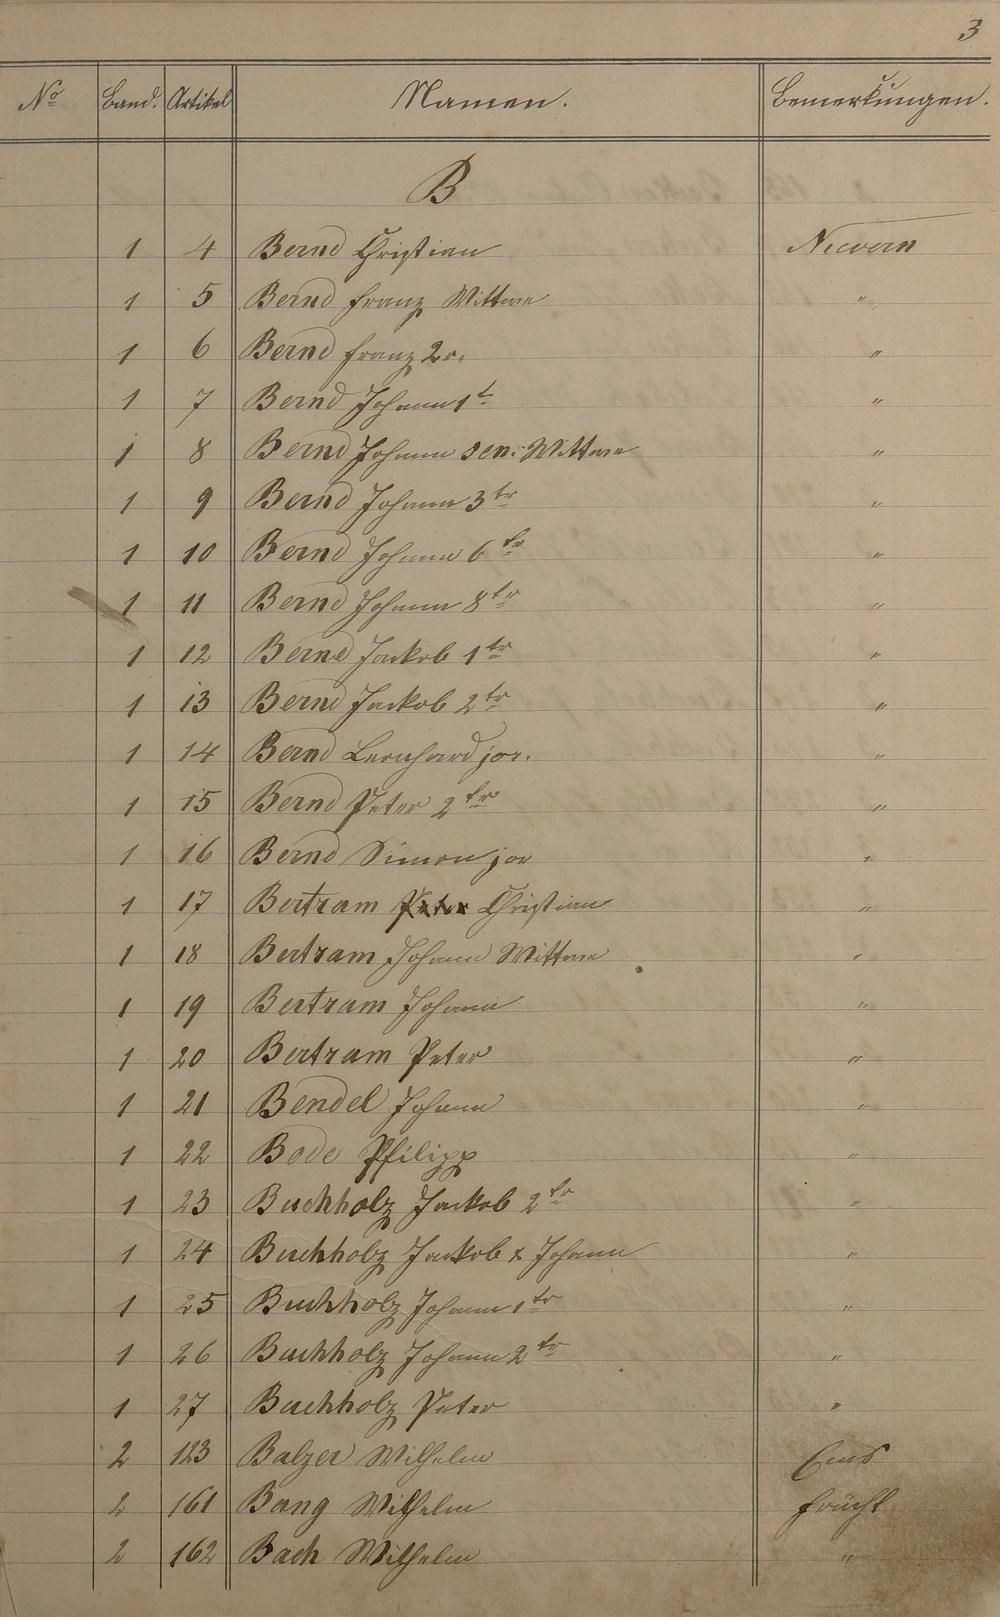 3
No Band. Artikel Namen. Bemerkungen.
B
1 4 Bernd Christian Nievern
1 5 Bernd Franz Wittwe "
1 6 Bernd Franz 2r. "
1 7 Bernd Johann 1t "
1 8 Bernd Johann sen: Wittwe "
1 9 Bernd Johann 3tr "
1 10 Bernd Johann 6tr "
1 11 Bernd Johann 8tr "
1 12 Bernd Jackob 1tr "
1 13 Bernd Jackob 2tr "
1 14 Bernd Bernhard jor. "
1 15 Bernd Peter 2tr "
1 16 Bernd Simon jor "
1 17 Bertram Peter Christian "
1 18 Bertram Johann Wittwe "
1 19 Bertram Johann "
1 20 Bertram Peter "
1 21 Bendel Johann "
1 22 Bode Philipp "
1 23 Buchholz Jackob 2tr "
1 24 Buchholz Jackob & Johann "
1 25 Buchholz Johann 1tr "
1 26 Buchholz Johann 2tr "
1 27 Buchholz Peter "
2 123 Balzer Wilhelm Ems
2 161 Bang Wilhelm Frücht
2 162 Bach Wilhelm "